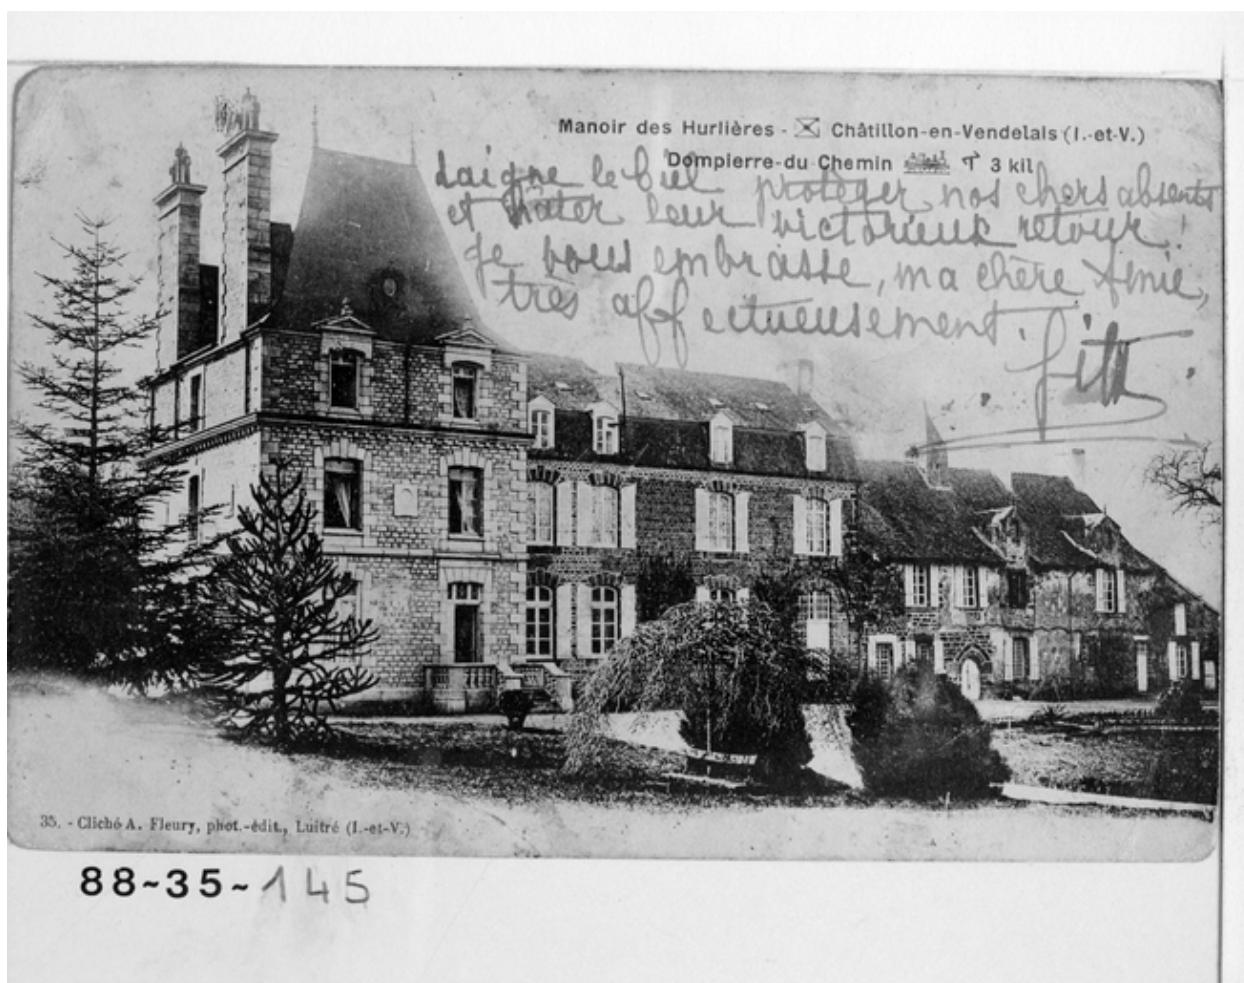 Manoir des Hurlières - Châtillon-en-Vendelais (I.-et-V.)
Dompierre-du-Chemin 3 kil
daigne le Ciel protéger nos chers absents
et hâter leur victorieux retour !
Je vous embrasse, ma chère Amie,
très affectueusement.
35. - Cliché A. Fleury, phot.-édit., Luitré (I.-et-V.)
88-35-145